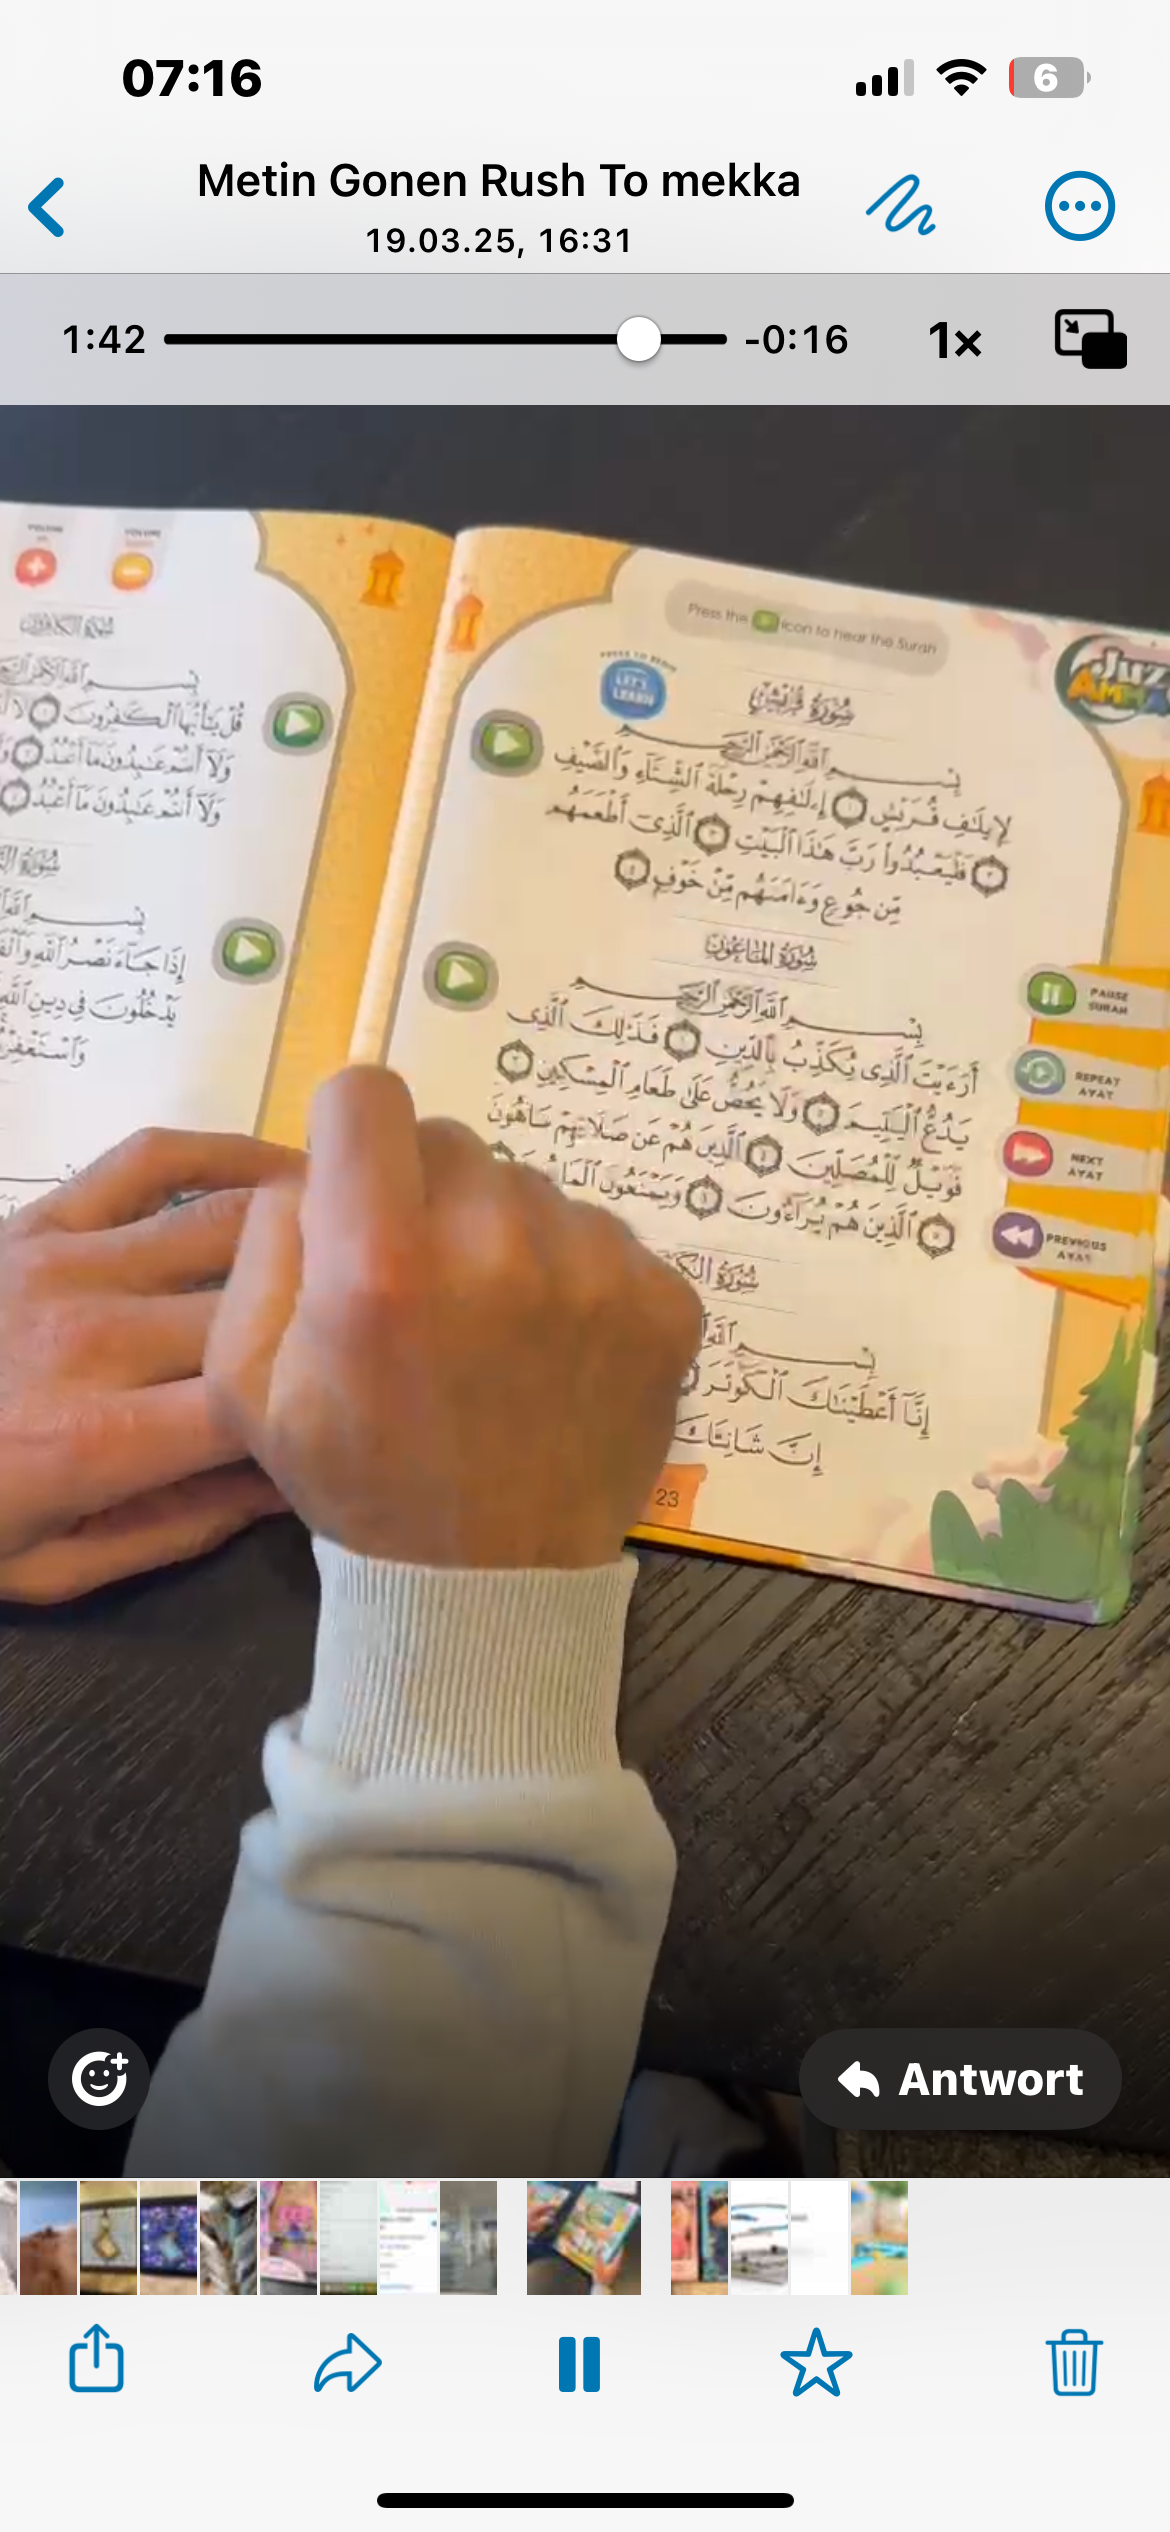 07:16
6
Metin Gonen Rush To mekka
19.03.25, 16:31
1:42
-0:16
1×
VOLUME
VOLUME
سُورَةُ الكَافِرُونَ
قُلْ يَٰٓأَيُّهَا ٱلْكَٰفِرُونَ ١ لَآ
وَلَآ أَنتُمْ عَٰبِدُونَ مَآ أَعْبُدُ
وَلَآ أَنتُمْ عَٰبِدُونَ مَآ أَعْبُدُ
سُورَةُ
بِسْمِ ٱللَّهِ
إِذَا جَآءَ نَصْرُ ٱللَّهِ وَٱلْفَ
يَدْخُلُونَ فِى دِينِ ٱللَّهِ
وَٱسْتَغْفِرْ
Press the icon to hear the Surah
PRESS TO BEGIN
LET'S LEARN
Juz
AMMA
سُورَةُ قُرَيْشٍ
بِسْمِ ٱللَّهِ ٱلرَّحْمَٰنِ ٱلرَّحِيمِ
لِإِيلَٰفِ قُرَيْشٍ ١ إِۦلَٰفِهِمْ رِحْلَةَ ٱلشِّتَآءِ وَٱلصَّيْفِ
٢ فَلْيَعْبُدُوا۟ رَبَّ هَٰذَا ٱلْبَيْتِ ٣ ٱلَّذِىٓ أَطْعَمَهُم
مِّن جُوعٍ وَءَامَنَهُم مِّنْ خَوْفٍۭ ٤
سُورَةُ المَاعُونِ
بِسْمِ ٱللَّهِ ٱلرَّحْمَٰنِ ٱلرَّحِيمِ
أَرَءَيْتَ ٱلَّذِى يُكَذِّبُ بِٱلدِّينِ ١ فَذَٰلِكَ ٱلَّذِى
يَدُعُّ ٱلْيَتِيمَ ٢ وَلَا يَحُضُّ عَلَىٰ طَعَامِ ٱلْمِسْكِينِ ٣
فَوَيْلٌ لِّلْمُصَلِّينَ ٤ ٱلَّذِينَ هُمْ عَن صَلَاتِهِمْ سَاهُونَ
٥ ٱلَّذِينَ هُمْ يُرَآءُونَ ٦ وَيَمْنَعُونَ ٱلْمَا
PAUSE SURAH
REPEAT AYAT
NEXT AYAT
PREVIOUS AYAT
سُورَةُ الكَ
بِسْمِ ٱللَّهِ
إِنَّآ أَعْطَيْنَٰكَ ٱلْكَوْثَرَ
إِنَّ شَانِئَكَ
23
Antwort